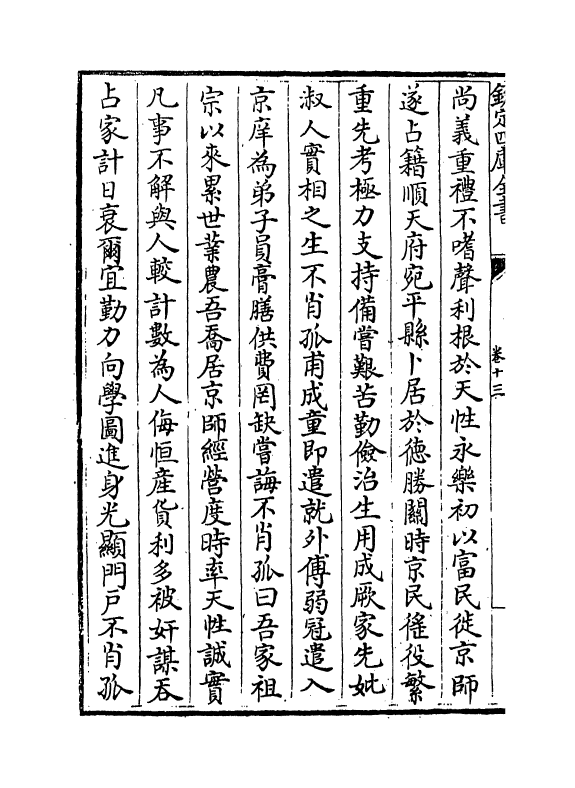 欽定四庫全書
卷十三
尚義重禮不嗜聲利根於天性永樂初以富民徙京師
遂占籍順天府宛平縣卜居於德勝關時京民徭役繁
重先考極力支持備嘗艱苦勤儉治生用成厥家先妣
淑人實相之生不肖孤甫成童即遣就外傅弱冠遣入
京庠為弟子員膏膳供費罔缺嘗誨不肖孤曰吾家祖
宗以來累世業農吾喬居京師經營度時率天性誠實
凡事不解與人較計數為人侮恒産貨利多被奸謀吞
占家計日衰爾宜勤力向學圖進身光顯門戶不肖孤